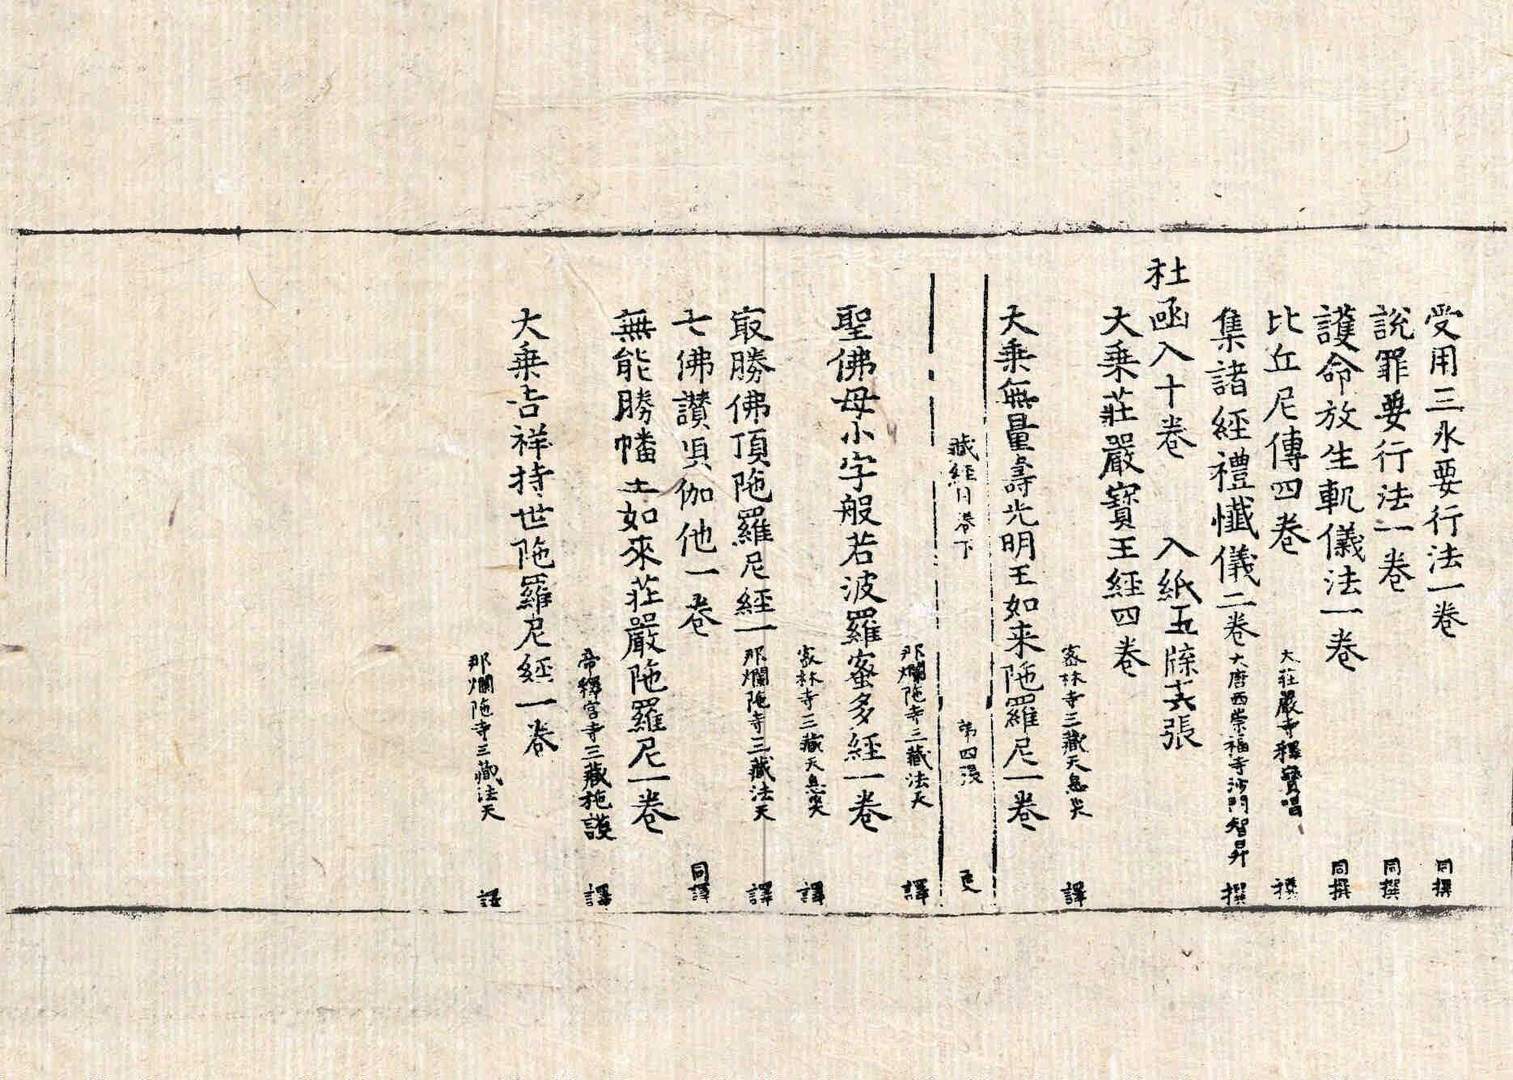 受用三水要行法一卷 同撰
說罪要行法一卷 同撰
護命放生軌儀法一卷 同撰
比丘尼傳四卷 大莊嚴寺釋寶唱 撰
集諸經禮懺儀二卷 大唐西崇福寺沙門智昇 撰
杜凾入十卷 入紙五牒六張
大乘莊嚴寶王經四卷
密林寺三藏天息災 譯
大乘無量壽光明王如来陁羅尼一卷
藏經目卷下 第四張 更
那爛陁寺三藏法天 譯
聖佛母小字般若波羅蜜多經一卷
密林寺三藏天息災 譯
㝡勝佛頂陁羅尼經一 那爛陁寺三藏法天 譯
七佛讃唄伽他一卷 同譯
無能勝幡王如來莊嚴陁羅尼一卷
帝釋宮寺三藏施護 譯
大乘吉祥持世陁羅尼經一卷
那爛陁寺三藏法天 譯